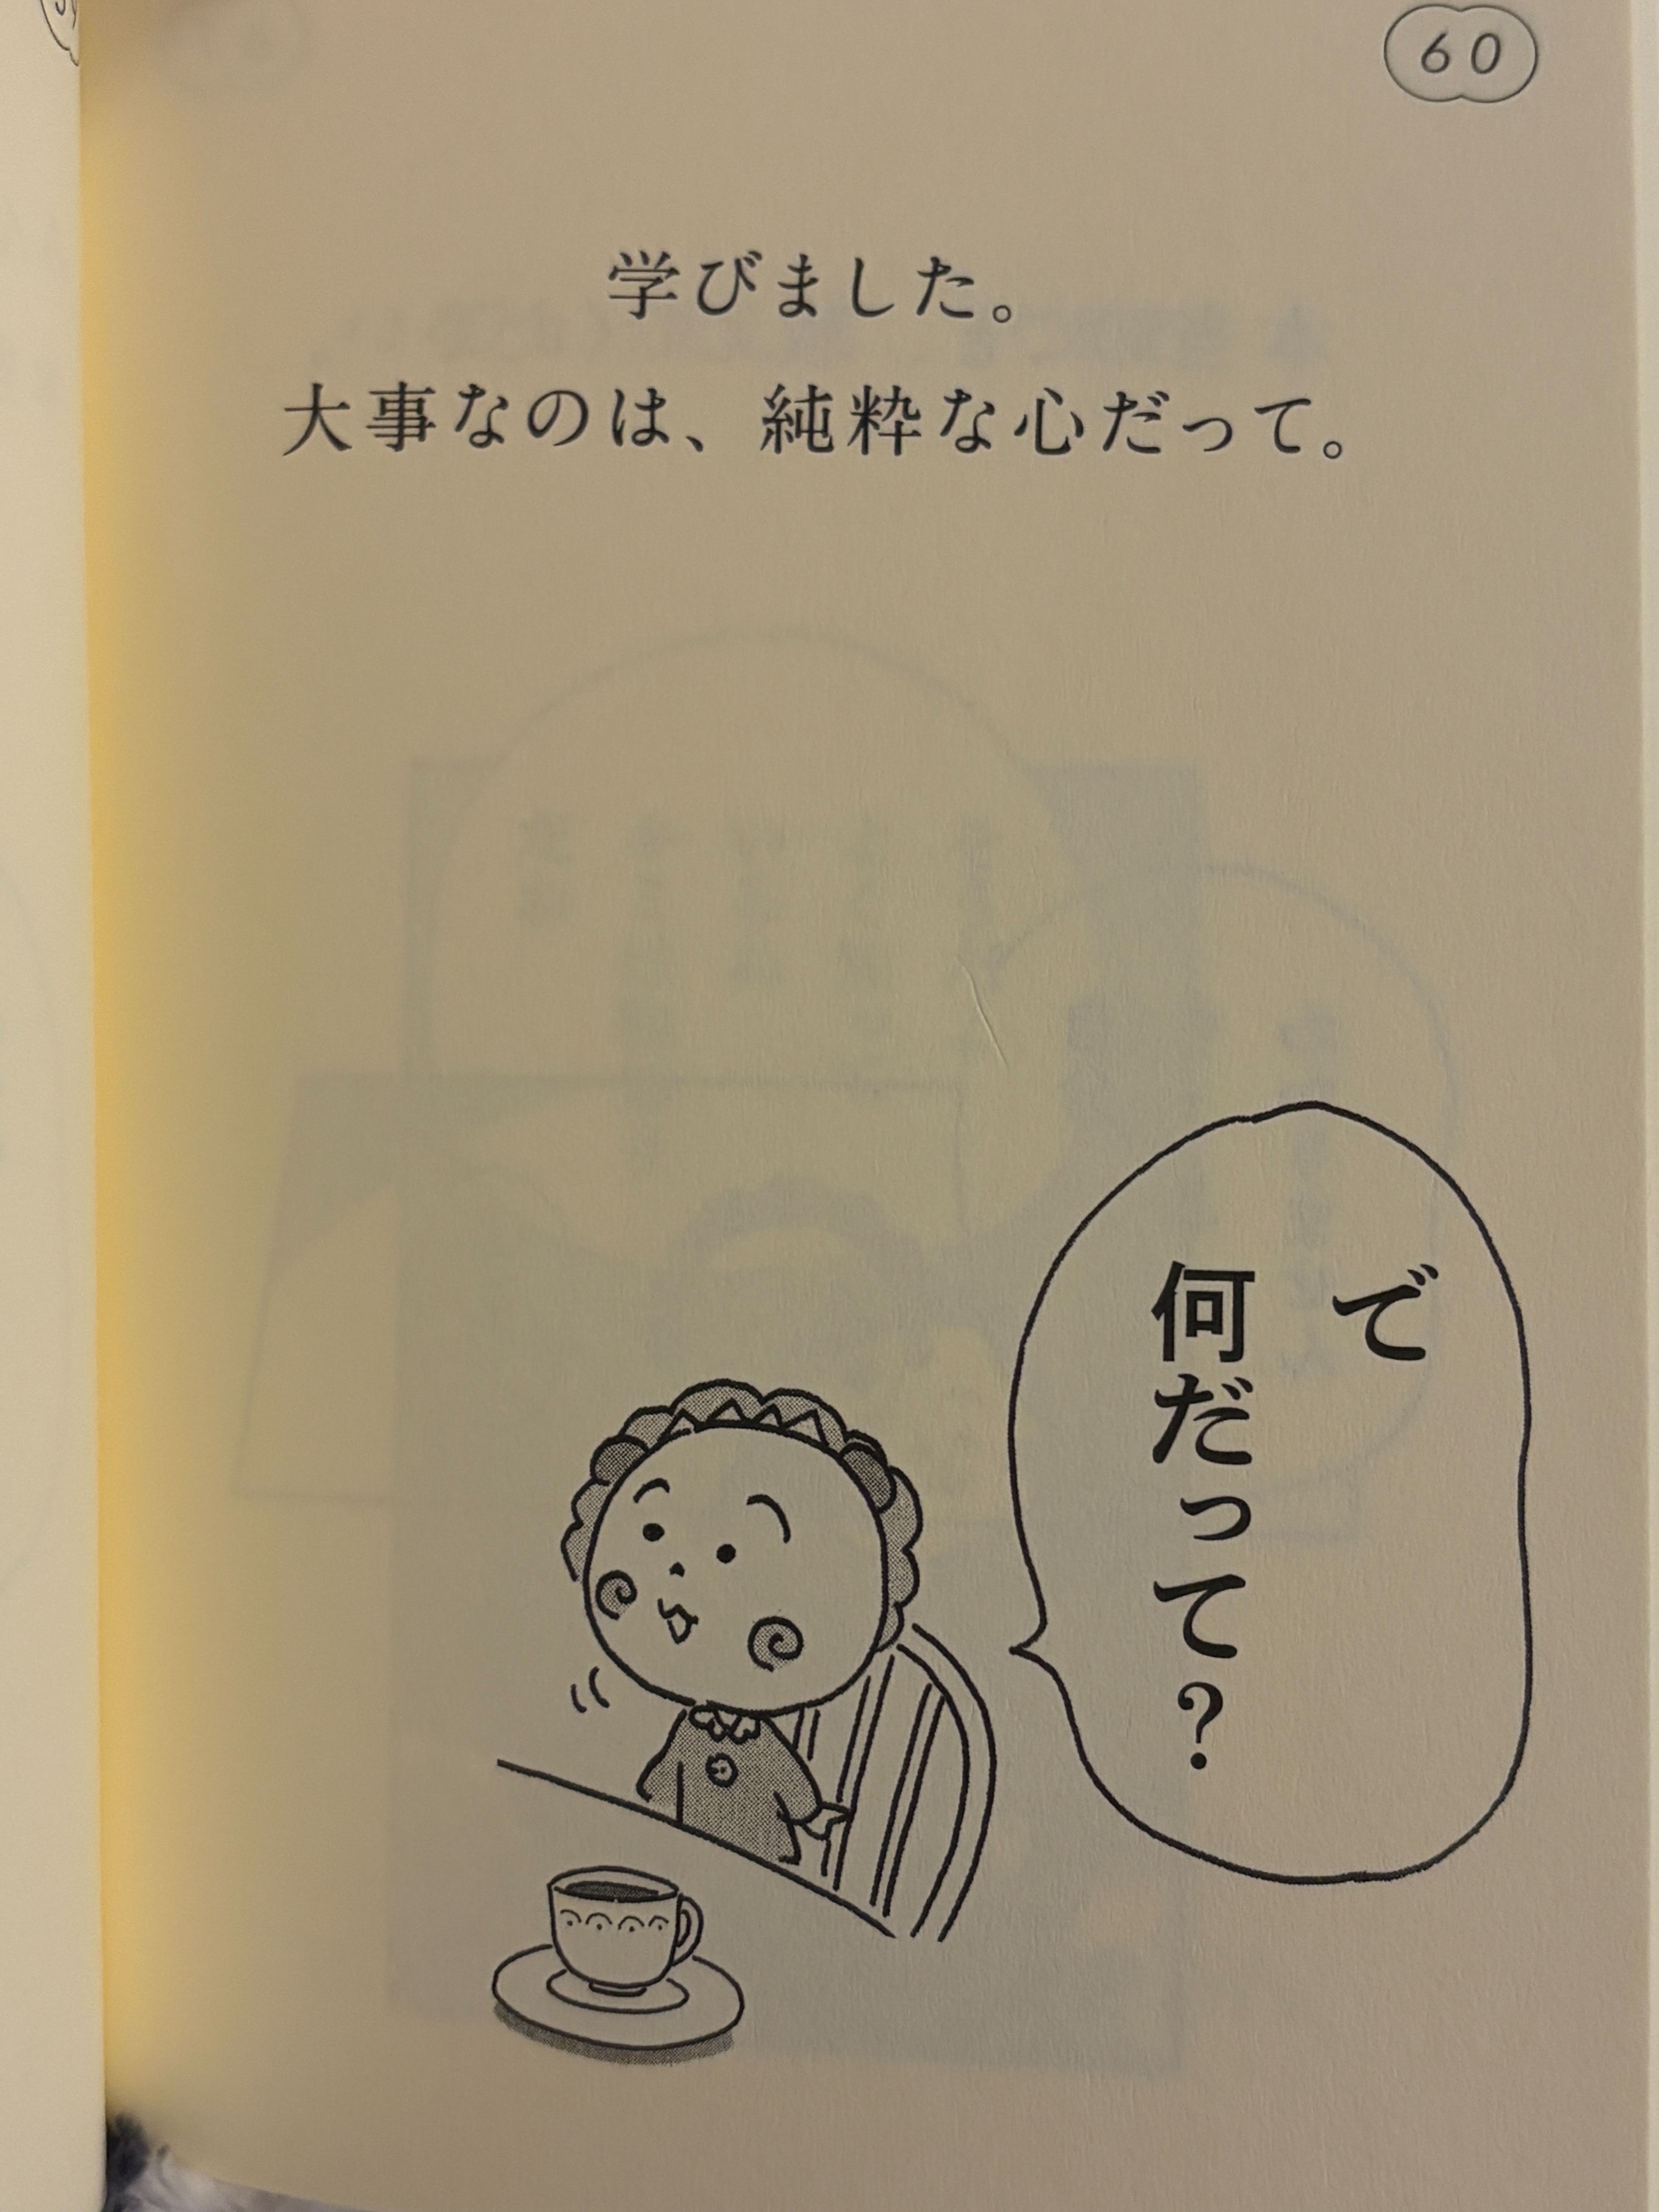 60
学びました。
大事なのは、純粋な心だって。
で
何だって？